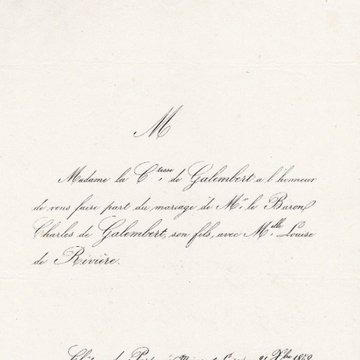 M
Madame la C.tesse de Galembert a l'honneur
de vous faire part du mariage de M.r le Baron
Charles de Galembert, son fils, avec M.elle Louise
de Rivière.